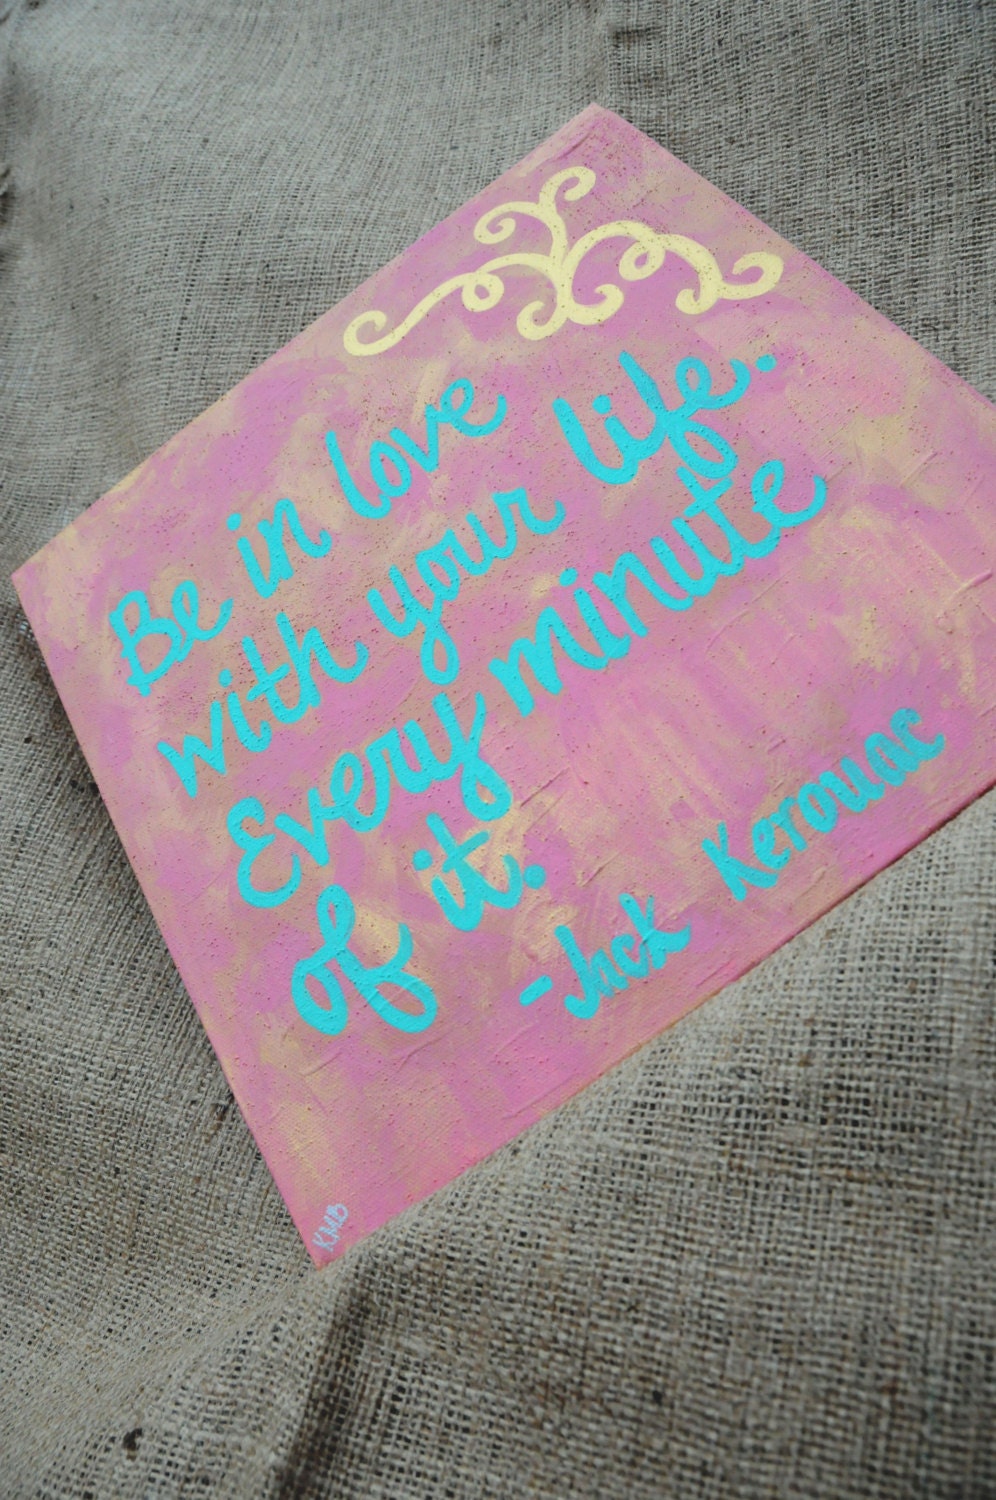 Be in love
with your life.
Every minute
of it.
-Jack Kerouac
KMB